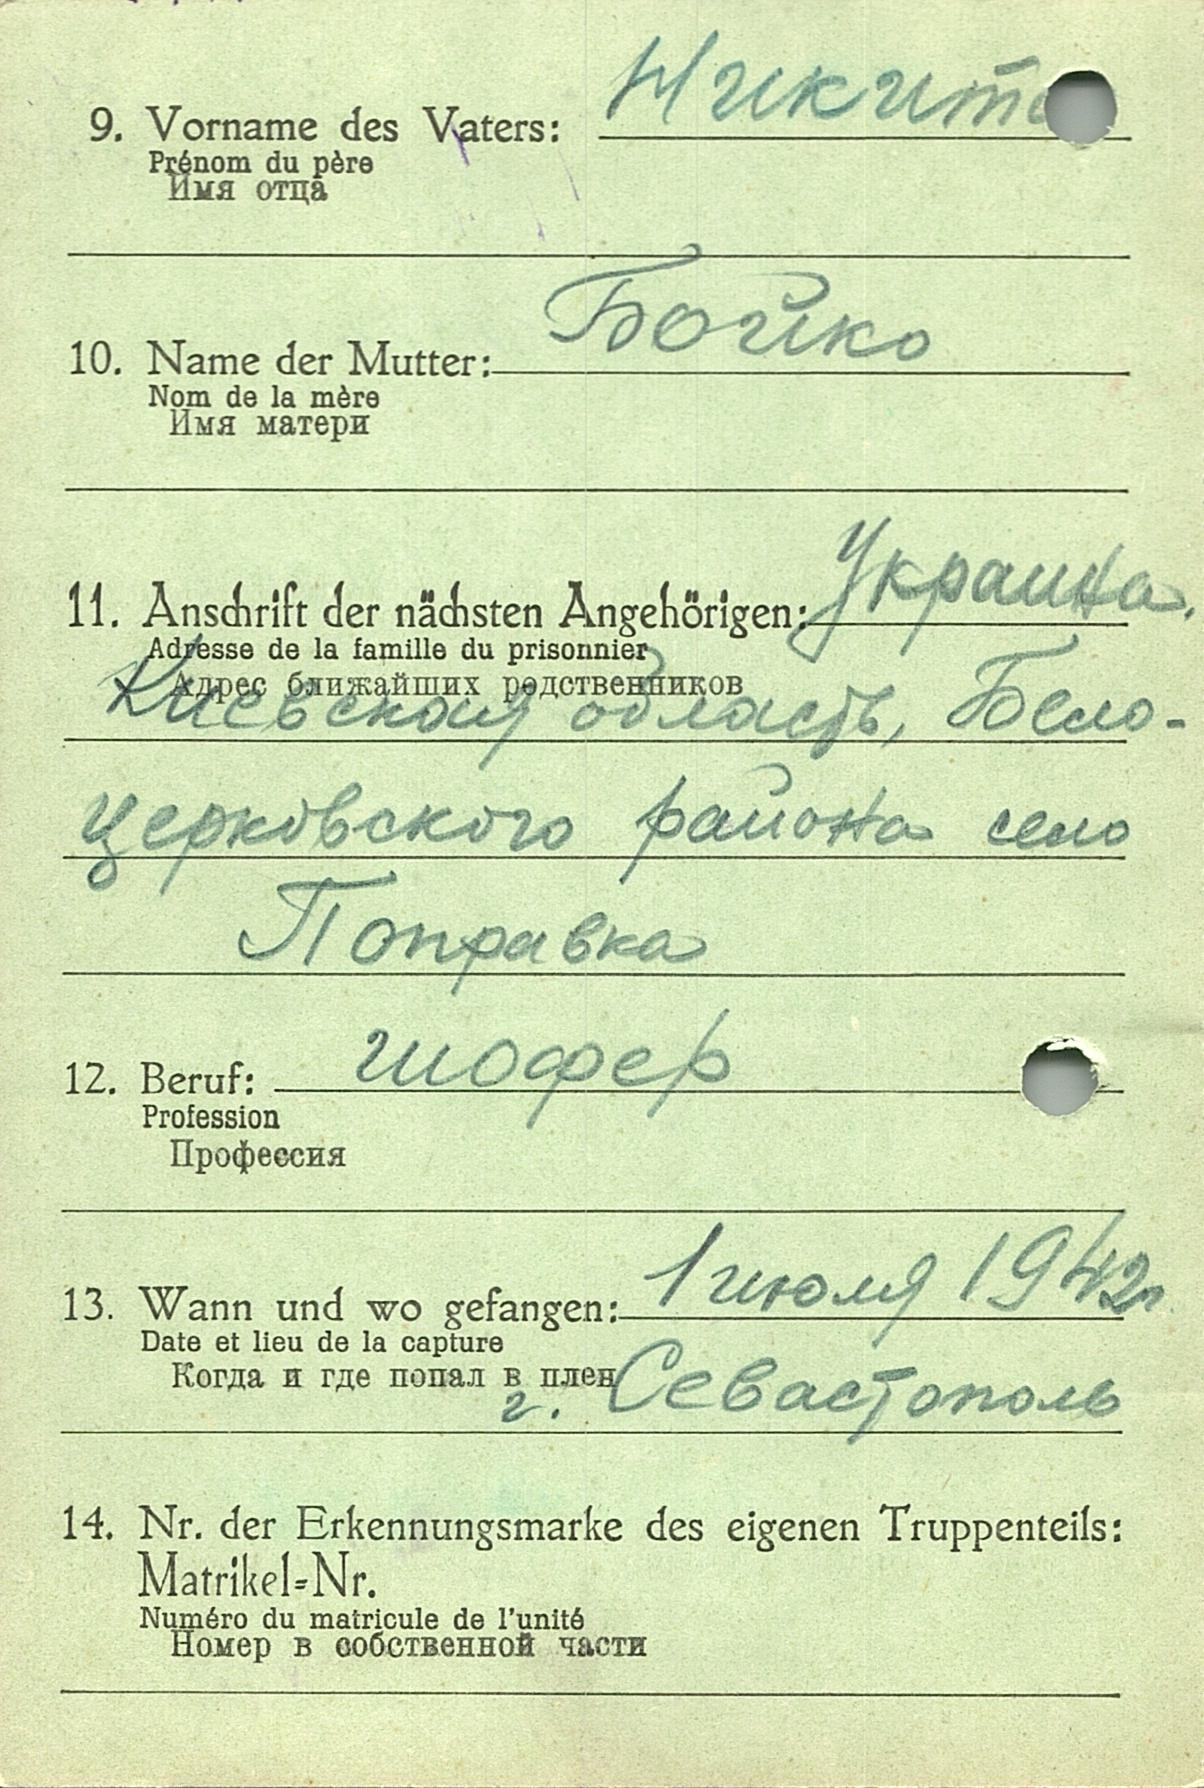 9. Vorname des Vaters: Никит
Prénom du père
Имя отца
10. Name der Mutter: Бойко
Nom de la mère
Имя матери
11. Anschrift der nächsten Angehörigen: Украина.
Adresse de la famille du prisonnier
Адрес ближайших родственников
Киевская область, Бело-
церковского района село
Поправка
12. Beruf: шофер
Profession
Профессия
13. Wann und wo gefangen: 1 июля 1942г.
Date et lieu de la capture
Когда и где попал в плен
г. Севастополь
14. Nr. der Erkennungsmarke des eigenen Truppenteils:
Matrikel=Nr.
Numéro du matricule de l'unité
Номер в собственной части